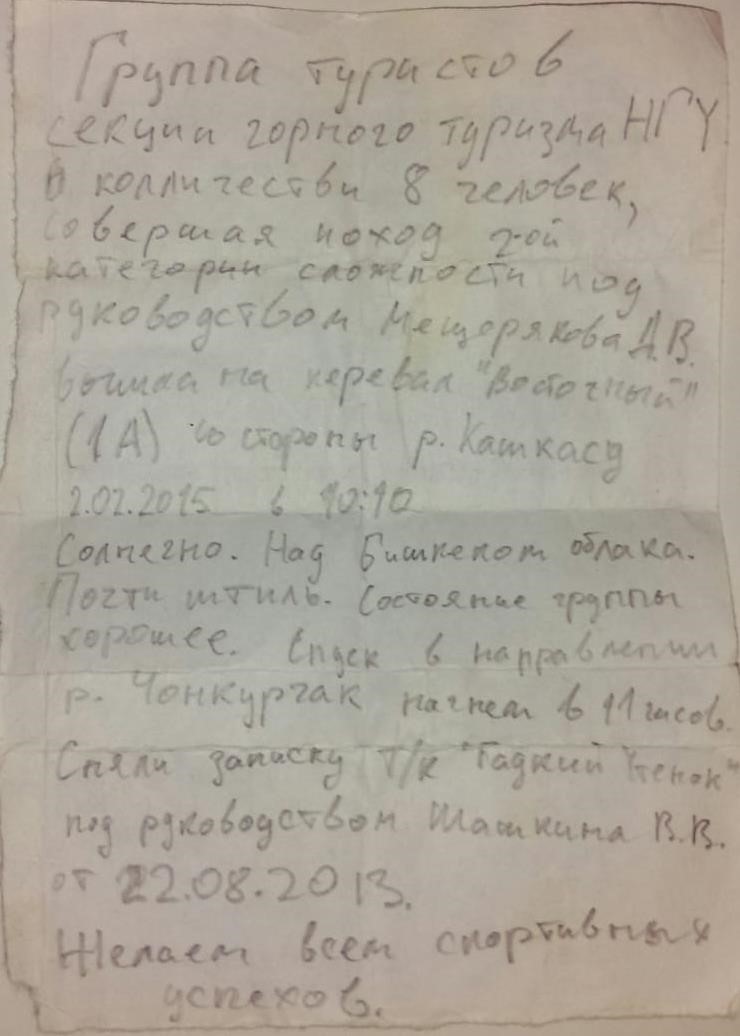 Группа туристов
секции горного туризма НГУ
в колличестви 8 человек,
совершая поход 2-ой
категории сложности под
руководством Мещерякова Д.В.
вышла на перевал "Восточный"
(1А) со стороны р. Кашкасу
2.02.2015 в 10:10
Солнечно. Над Бишкеком облака.
Почти штиль. Состояние группы
хорошее. Спуск в направлении
р. Чонкурчак начнем в 11 часов.
Сняли записку Т/к "Гадкий Утенок"
под руководством Шашкина В.В.
от 22.08.2013.
Желаем всем спортивных
успехов.